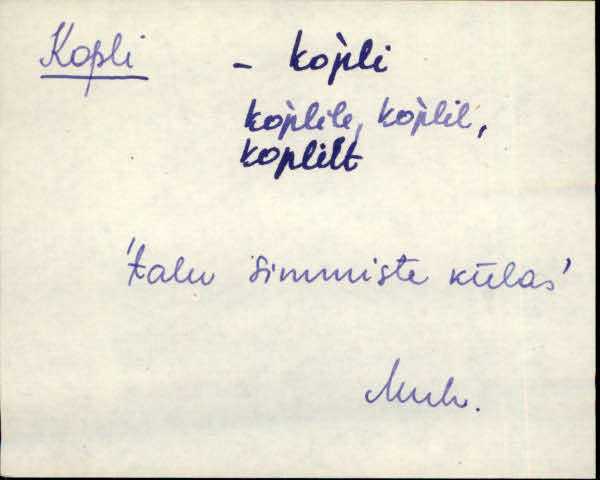 Kopli - kop̀li
kop̀lile, kop̀lil,
koplilt
'talu Simmiste külas'
Muh.